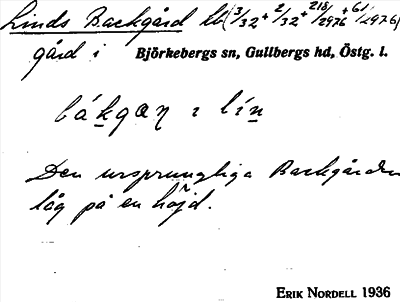 Linds Backgård lb (3/32 + 2/32 + 218/2976 + 61/2976)
gård i Björkebergs sn, Gullbergs hd, Östg. l.
bákgan ı lín
Den ursprungliga Backgården
låg på en höjd.
ERIK NORDELL 1936